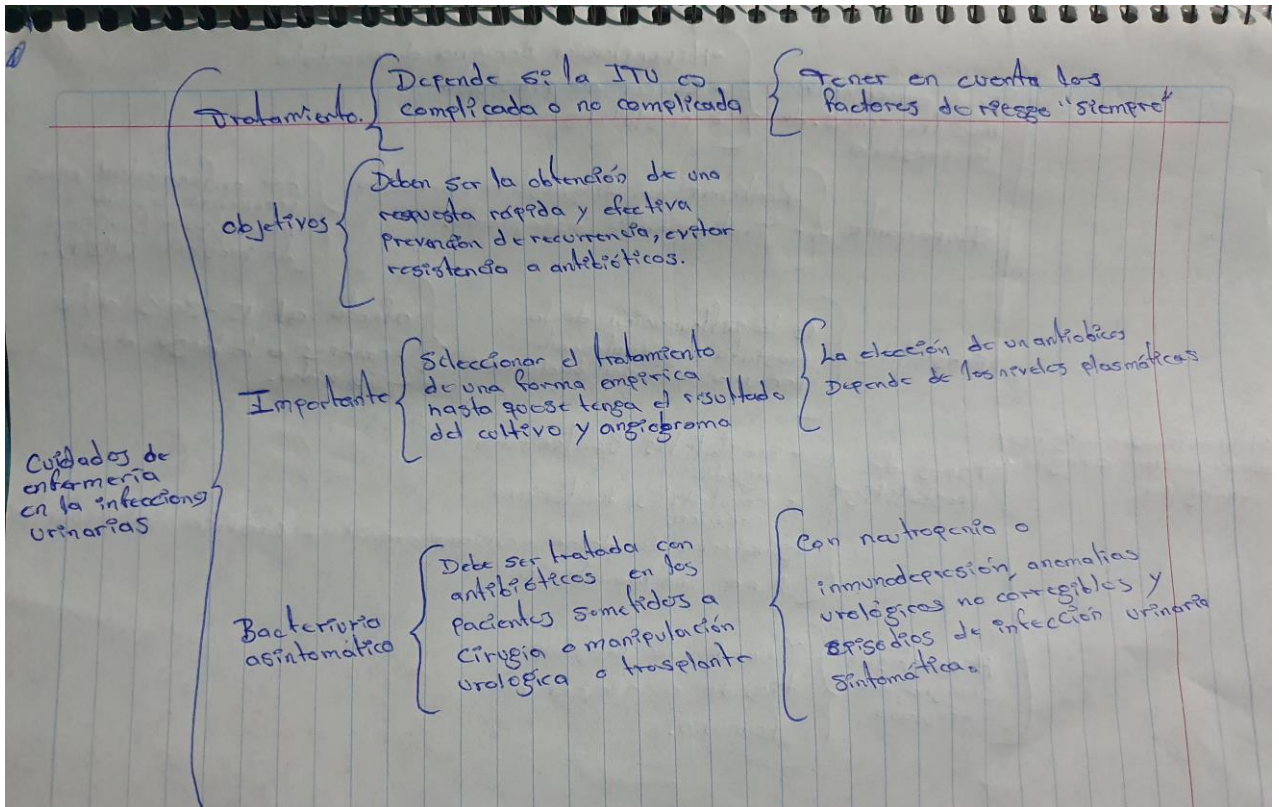 Tratamiento.
Depende si la ITU es
complicada o no complicada
Tener en cuenta los
factores de riesgo "siempre"
objetivos
Deben ser la obtención de una
respuesta rápida y efectiva
prevención de recurrencia, evitar
resistencia a antibióticos.
Importante
Seleccionar el tratamiento
de una forma empírica
hasta que se tenga el resultado
del cultivo y angiograma
La elección de un antiobicos
Depende de los niveles plasmáticos
Cuidados de
enfermería
en la infeccions
urinarias
Bacteriuria
asintomático
Debe ser tratada con
antibióticos en los
pacientes sometidos a
cirugía o manipulación
urologica o trasplante
Con neutropenia o
inmunodepresión, anomalias
urológicas no corregibles y
episodios de infección urinaria
sintomática.